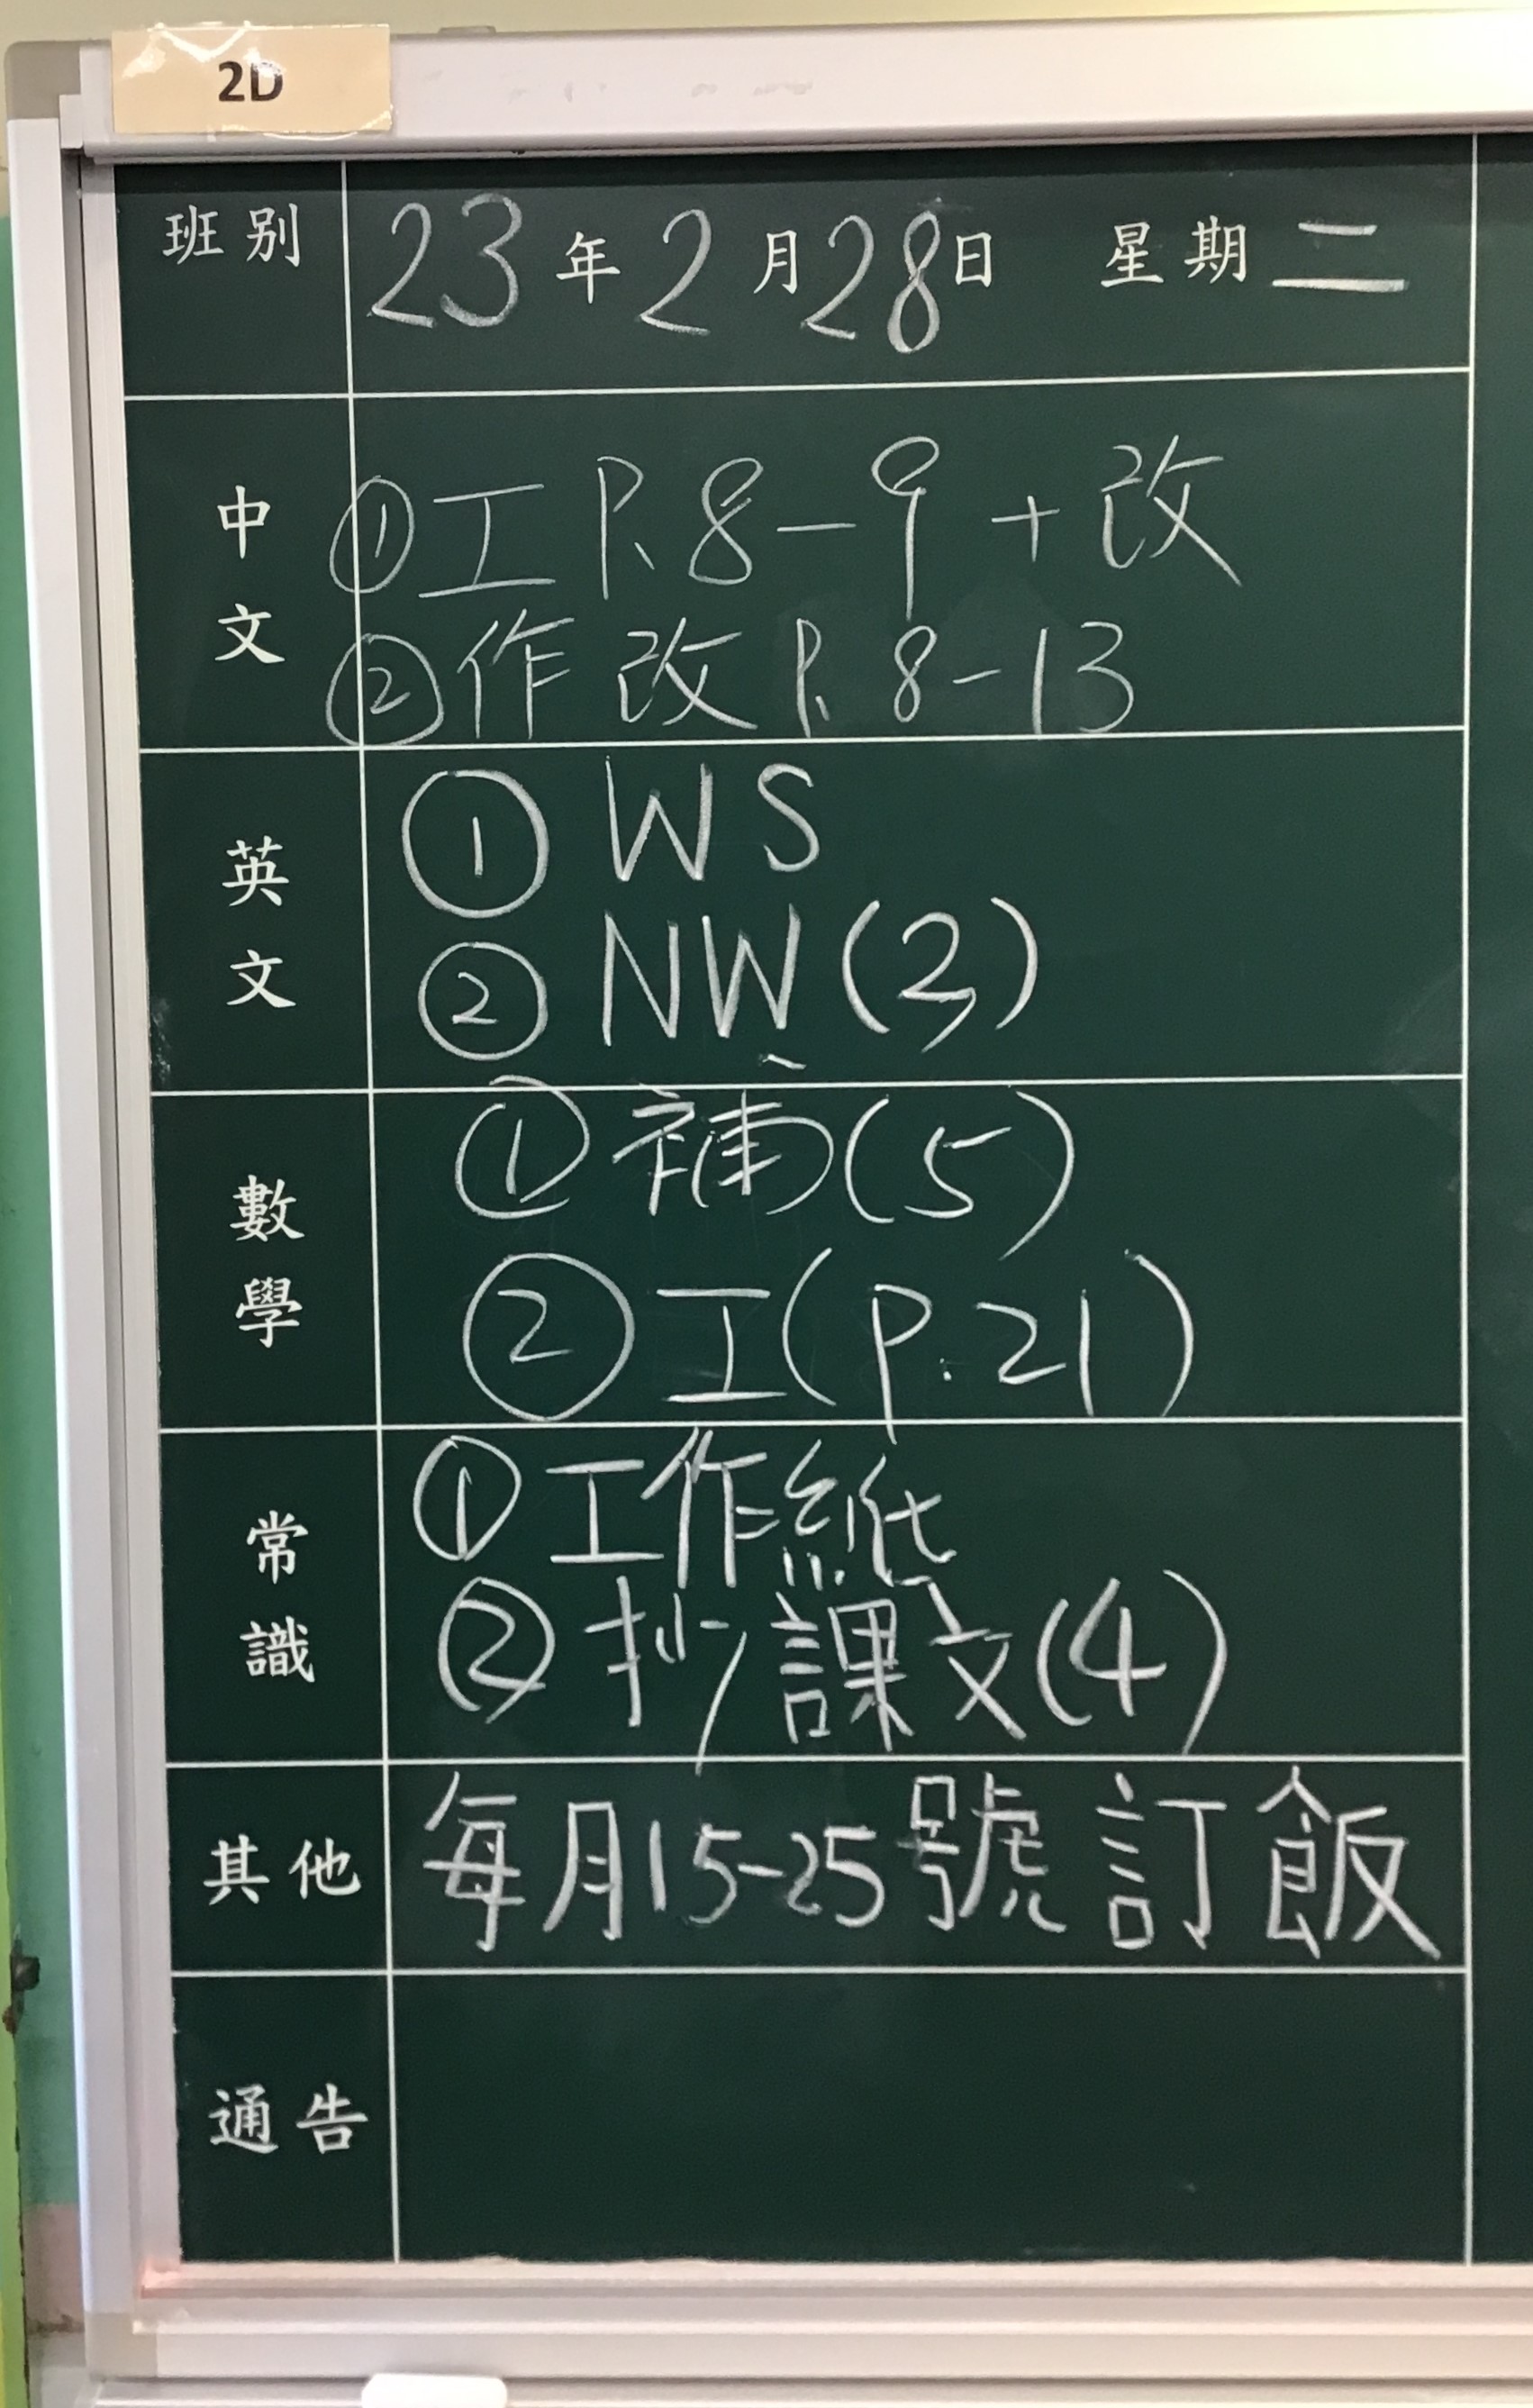 2D
班別 23年2月28日 星期二
中文 ①工 P.8-9 + 改
②作改 P.8-13
英文 ① WS
② NW (3)
數學 ①補(5)
②工(P.21)
常識 ①工作紙
②抄課文(4)
其他 每月15-25號訂飯
通告